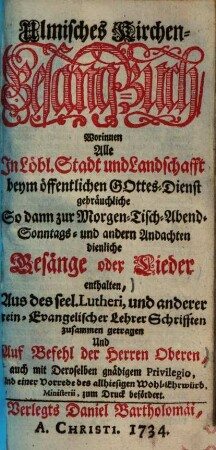 Ulmisches Kirchen-
Gesang-Buch
Worinnen
Alle
In Löbl. Stadt und Landschafft
beym öffentlichen GOttes-Dienst
gebräuchliche
So dann zur Morgen-Tisch-Abend-
Sonntags- und andern Andachten
dienliche
Gesänge oder Lieder
enthalten,
Aus des seel. Lutheri, und anderer
rein-Evangelischer Lehrer Schrifften
zusammen getragen
Und
Auf Befehl der Herren Oberen,
auch mit Deroselben gnädigem Privilegio,
und einer Vorrede des allhiesigen Wohl-Ehrwürd.
Ministerii, zum Druck befördert.
Verlegts Daniel Bartholomäi,
A. CHRISTI. 1734.